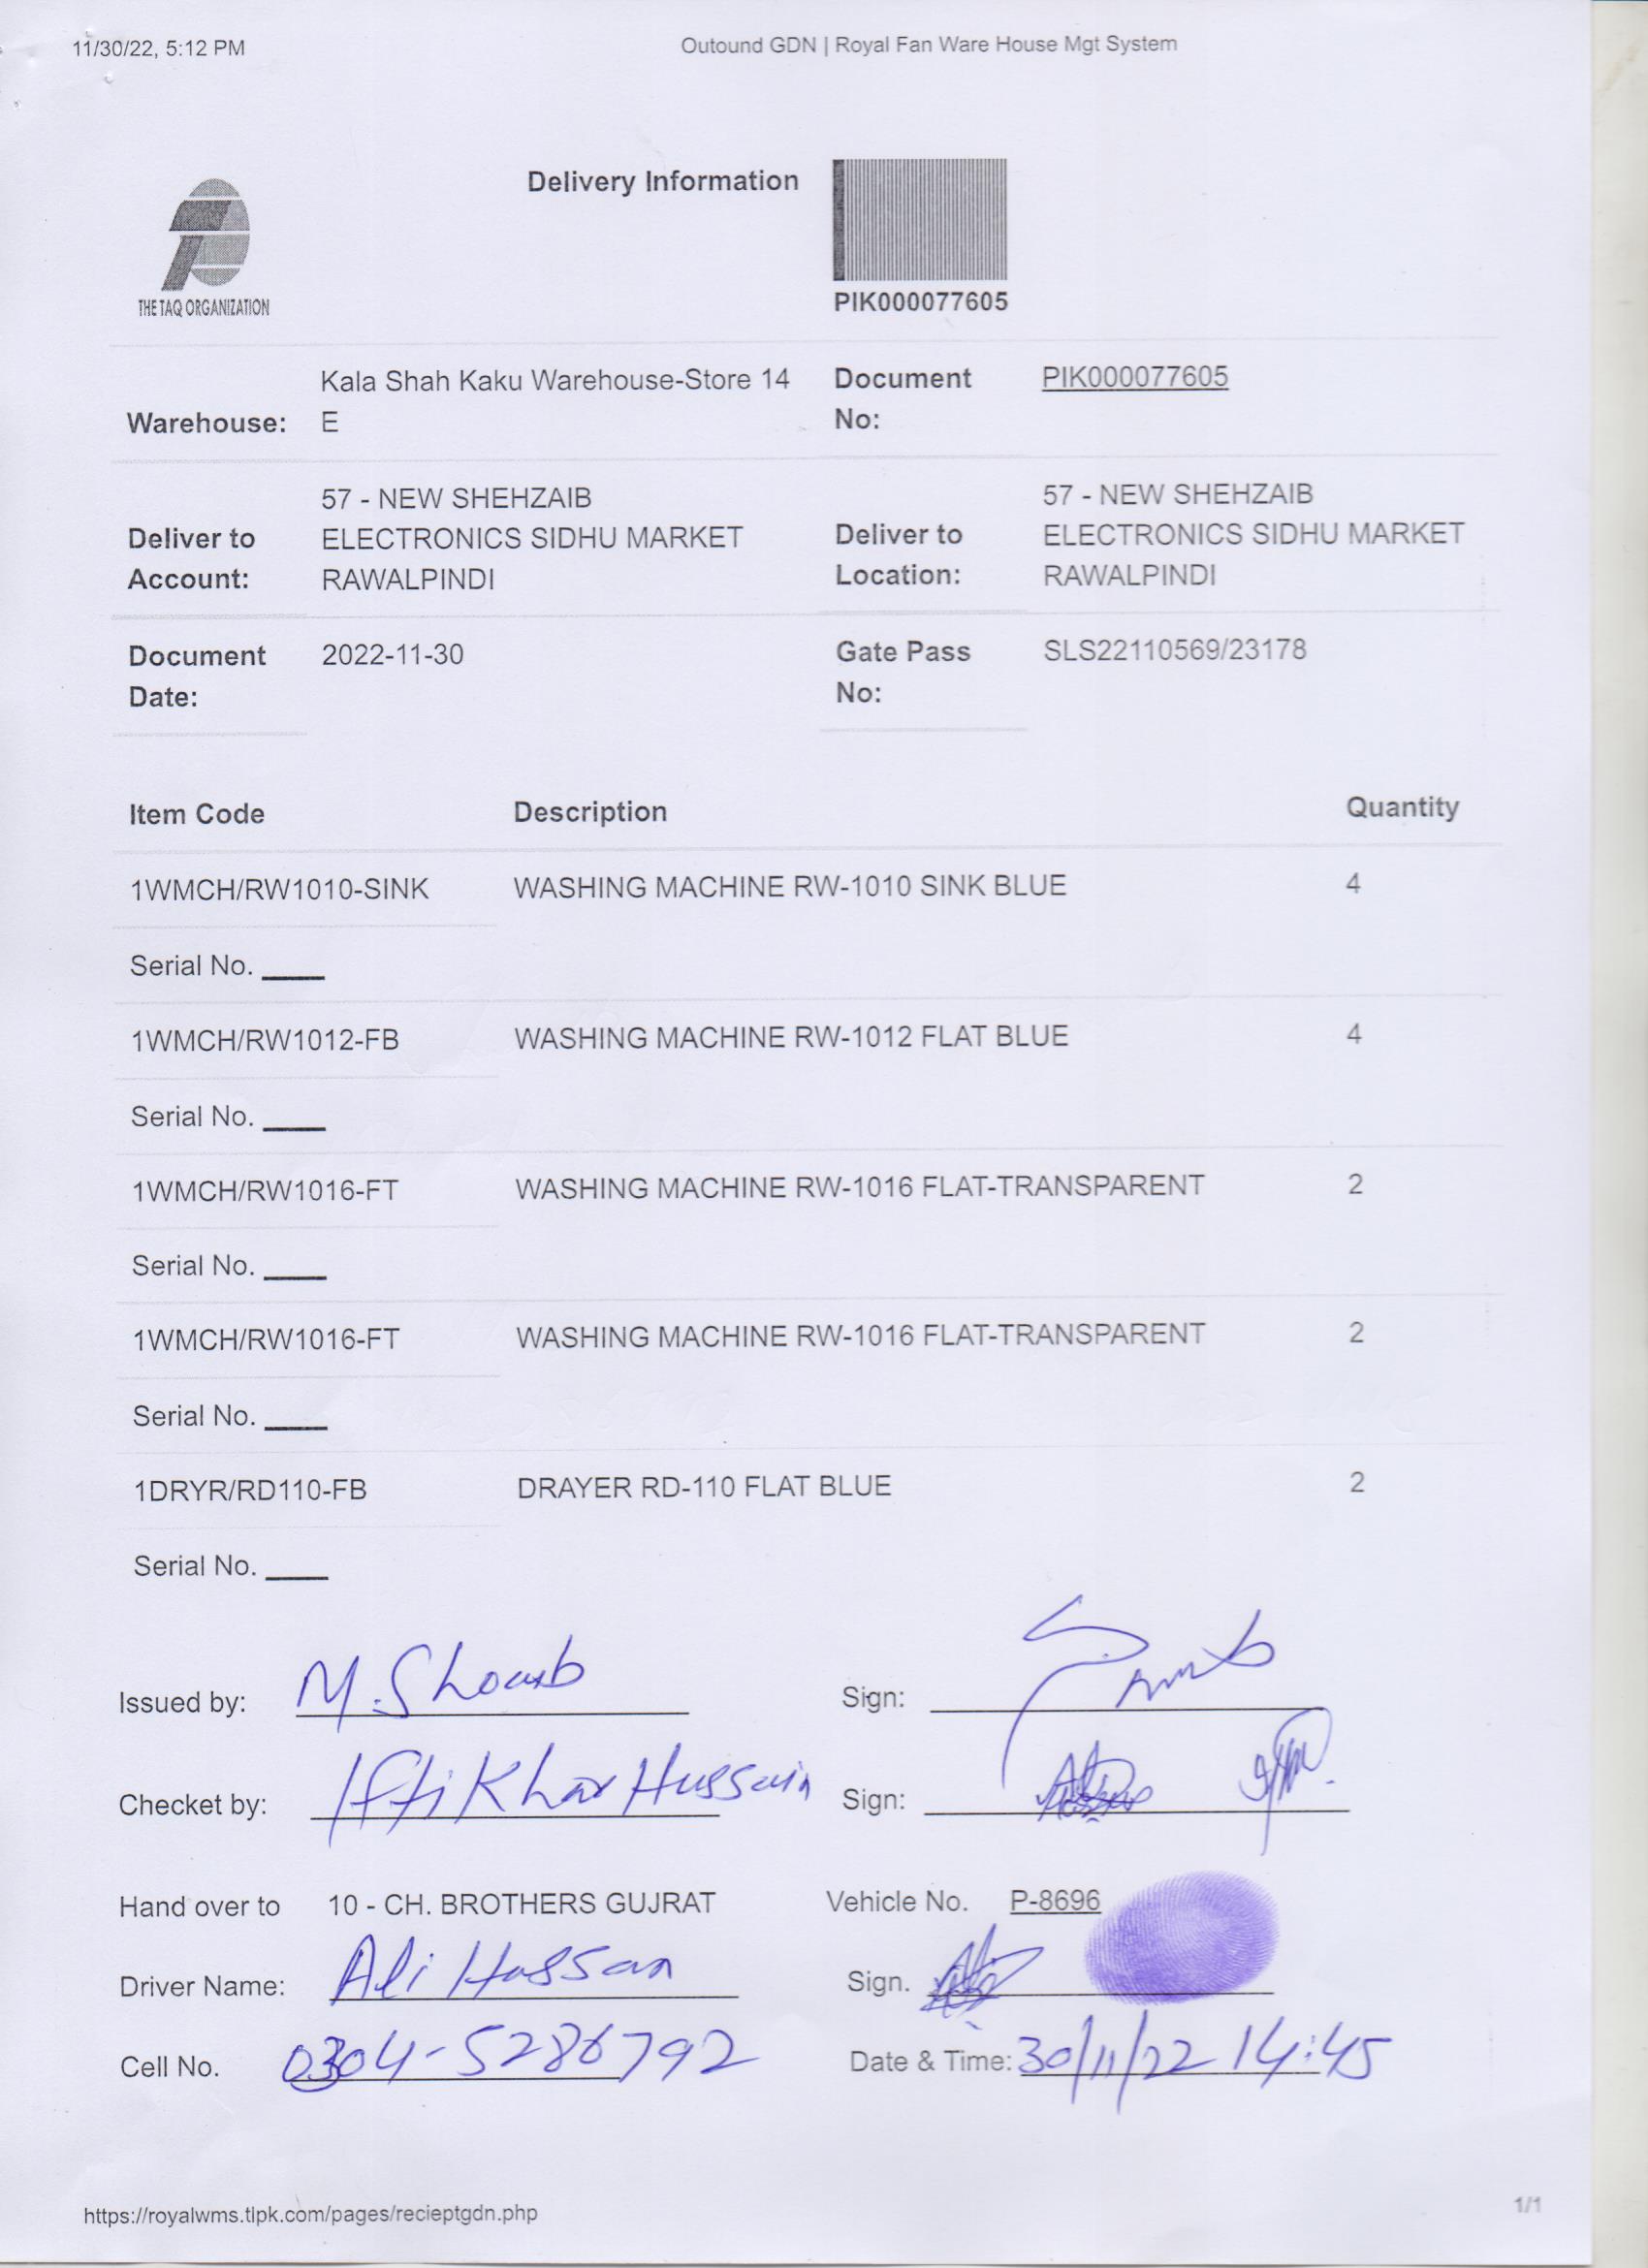 11/30/22, 5:12 PM
Outound GDN | Royal Fan Ware House Mgt System
Delivery Information
THE TAQ ORGANIZATION
PIK000077605
Warehouse: Kala Shah Kaku Warehouse-Store 14 E
Document No: PIK000077605
Deliver to Account: 57 - NEW SHEHZAIB ELECTRONICS SIDHU MARKET RAWALPINDI
Deliver to Location: 57 - NEW SHEHZAIB ELECTRONICS SIDHU MARKET RAWALPINDI
Document Date: 2022-11-30
Gate Pass No: SLS22110569/23178
Item Code Description Quantity
1WMCH/RW1010-SINK WASHING MACHINE RW-1010 SINK BLUE 4
Serial No. ____
1WMCH/RW1012-FB WASHING MACHINE RW-1012 FLAT BLUE 4
Serial No. ____
1WMCH/RW1016-FT WASHING MACHINE RW-1016 FLAT-TRANSPARENT 2
Serial No. ____
1WMCH/RW1016-FT WASHING MACHINE RW-1016 FLAT-TRANSPARENT 2
Serial No. ____
1DRYR/RD110-FB DRAYER RD-110 FLAT BLUE 2
Serial No. ____
Issued by: M. Shoaib Sign:
Checket by: Iftikhar Hussain Sign:
Hand over to 10 - CH. BROTHERS GUJRAT Vehicle No. P-8696
Driver Name: Ali Hassan Sign.
Cell No. 0304-5286792 Date & Time: 30/11/22 14:45
https://royalwms.tlpk.com/pages/recieptgdn.php
1/1